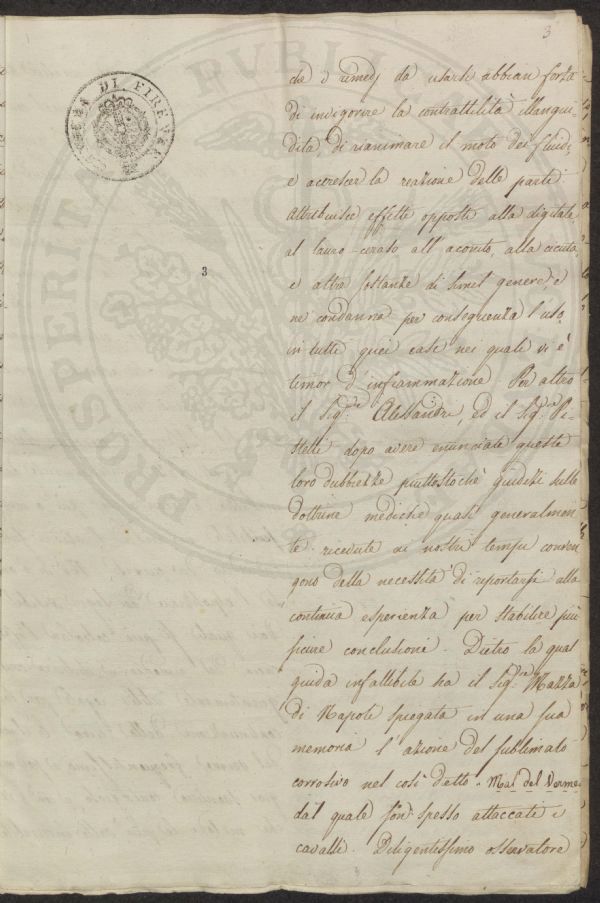 3
che i rimedj da usarsi abbian forza
di invigorire la contrattilità illangui-
dita di rianimare il moto dei fluidi,
e accrescer la reazione delle parti.
Attribuisce effetti opposti alla digitale
al lauro-ceraso all'aconito, alla cicuta,
e altre sostanze di simil genere, e
ne condanna per conseguenza l'uso
in tutti quei casi nei quali vi è
timor d'infiammazione. Per altro
il Sigre. Alessandri, ed il Sigre. Pi-
stelli dopo avere enunciate queste
loro dubbiezze piuttostochè giudizi sulle
dottrine mediche quasi generalmen-
te ricevute ai nostri tempi conven-
gono della necessità di riportarsi alla
continua esperienza per stabilire più
sicure conclusioni. Dietro la qual
guida infallibile ha il Sigre. Mazza
di Napoli spiegata in una sua
memoria l'azione del sublimato
corrosivo nel così detto Mal del Verme
dal quale son spesso attaccati i
cavalli. Diligentissimo osservatore
3
DI FIRENZE
PROSPERITA
PVBLIC